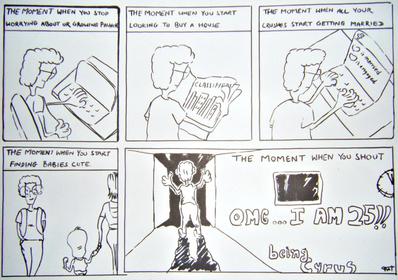 THE MOMENT WHEN YOU STOP
WORRYING ABOUT UR GROWING PAUNCH
THE MOMENT WHEN YOU START
LOOKING TO BUY A HOUSE
CLASSIFIEDS
THE MOMENT WHEN ALL YOUR
CRUSHES START GETTING MARRIED
is married
is engaged
THE MOMENT WHEN YOU START
FINDING BABIES CUTE.
THE MOMENT WHEN YOU SHOUT
OMG...I AM 25!!!
being
Cyrus